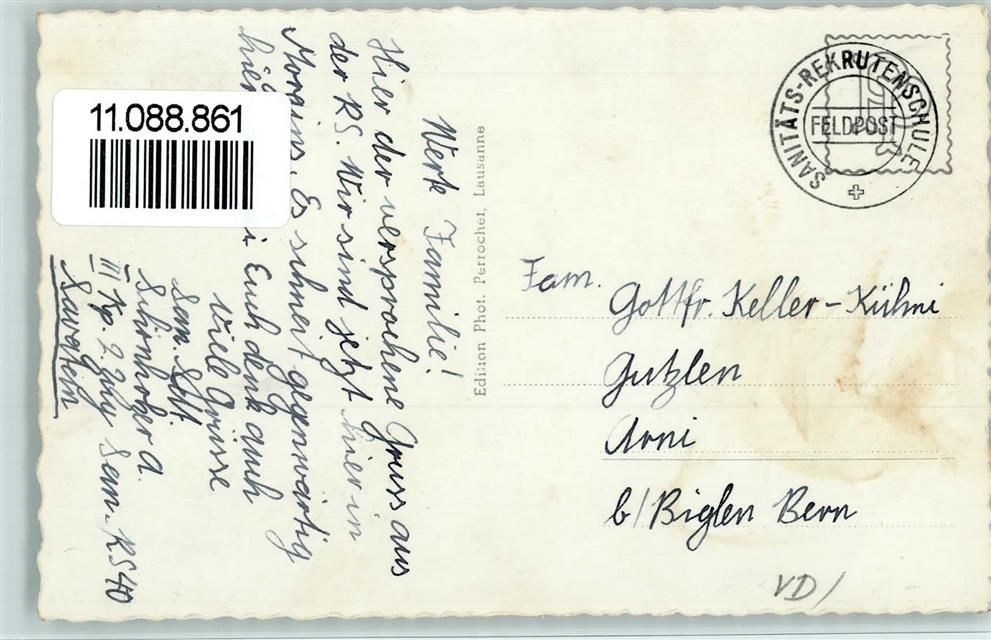 11.088.861
Werte Familie!
Hier der versprochene Gruss aus
der RS. Wir sind jetzt hier in
Morgins. Es schneit gegenwärtig
hier Euch denk auch
Viele Grüsse
San. Sdt.
Schirnhofer A.
III Kp. 2. Zug San. RS 40
Savatan
Edition Phot. Perrochet, Lausanne
SANITÄTS-REKRUTENSCHULE
FELDPOST
Fam.
Gottfr. Keller-Kühni
Gutzlen
Arni
b/Biglen Bern
VD/